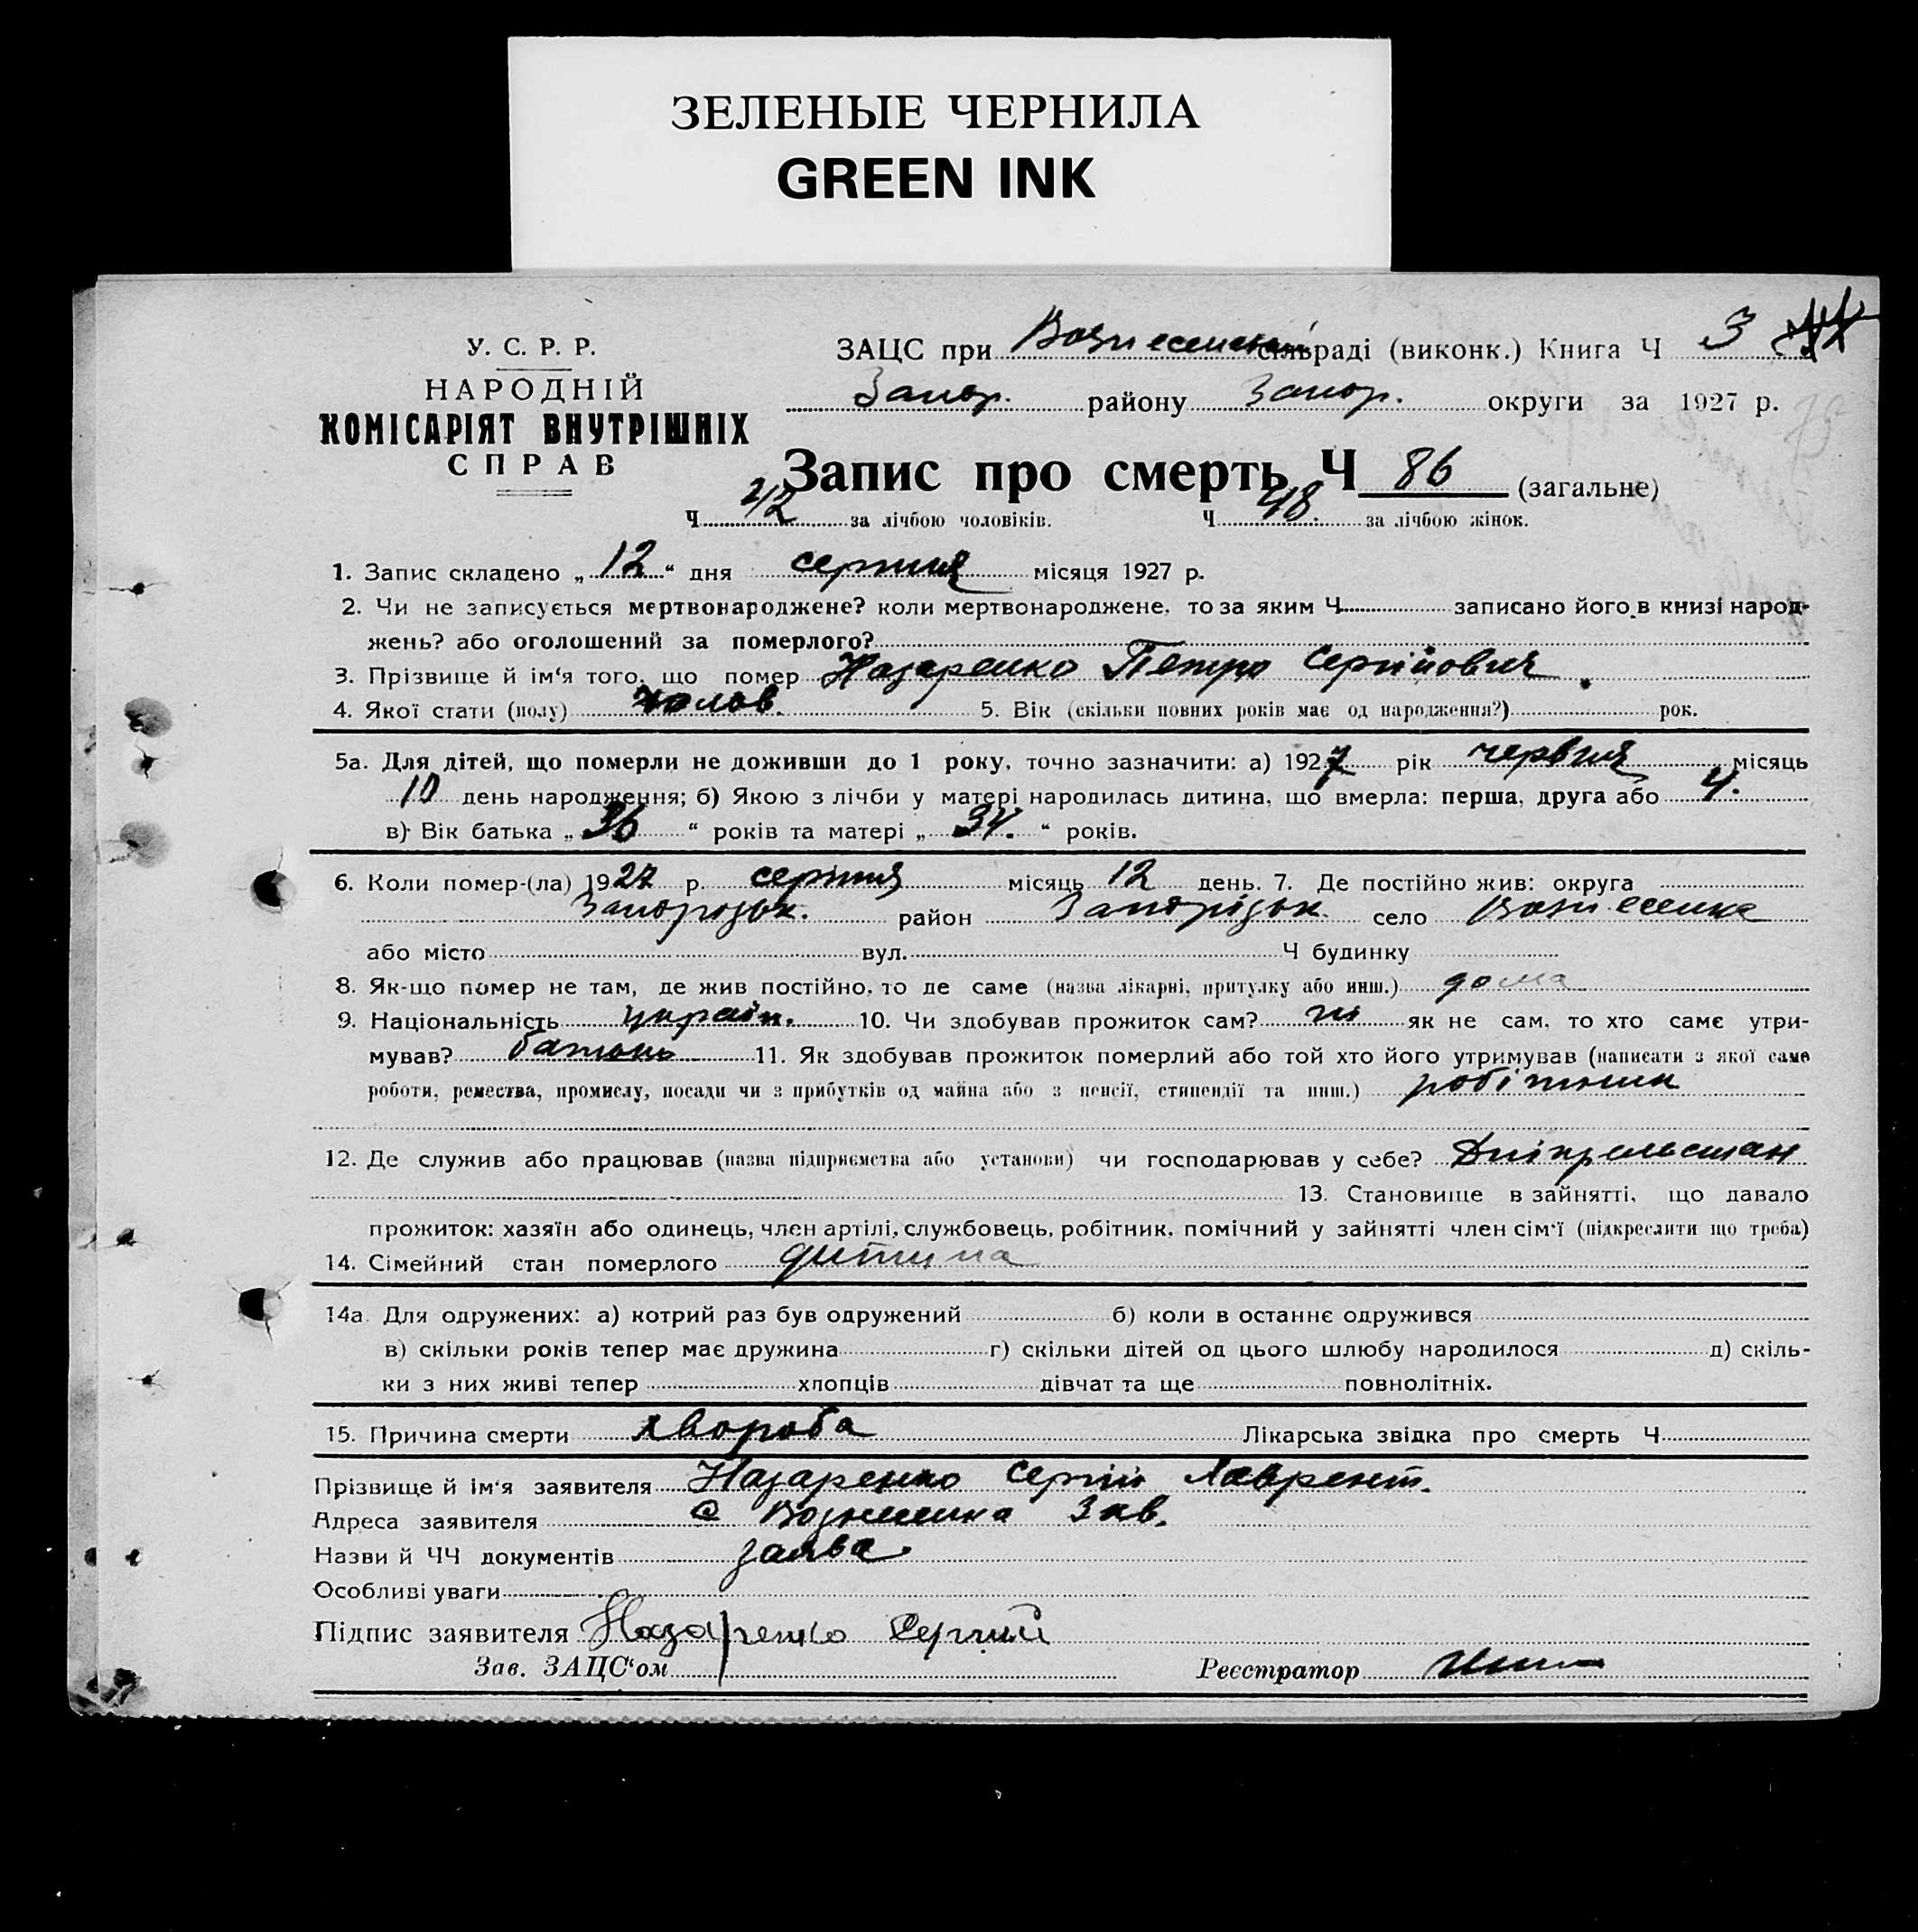 ЗЕЛЕНЫЕ ЧЕРНИЛА
GREEN INK
У. С. Р. Р.
НАРОДНІЙ
КОМІСАРІЯТ ВНУТРІШНІХ
СПРАВ
ЗАЦС при Вознесенській сільраді (виконк.) Книга Ч 3
Запор. району Запор. округи за 1927 р.
Запис про смерть Ч 86 (загальне)
Ч 42 за лічбою чоловіків. Ч 48. за лічбою жінок.
1. Запис складено „ 12 “ дня серпня місяця 1927 р.
2. Чи не записується мертвонароджене? коли мертвонароджене, то за яким Ч записано його в книзі народ-
жень? або оголошений за померлого?
3. Прізвище й ім‘я того, що помер Назаренко Петро Сергійович
4. Якої стати (полу) чолов. 5. Вік (скільки повних років має од народження?) рок.
5а. Для дітей, що померли не доживши до 1 року, точно зазначити: а) 1927 рік червня місяць
10 день народження; б) Якою з лічби у матері народилась дитина, що вмерла: перша, друга або 4.
в) Вік батька „ 36 “ років та матері „ 34. “ років.
6. Коли помер-(ла) 1927 р. серпня місяць 12 день. 7. Де постійно жив: округа
Запорізьк. район Запорізьк. село Вознесенка
або місто вул. Ч будинку
8. Як-що помер не там, де жив постійно, то де саме (назва лікарні, притулку або инш.) дома
9. Національність україн. 10. Чи здобував прожиток сам? ні як не сам, то хто саме утри-
мував? батько 11. Як здобував прожиток померлий або той хто його утримував (написати з якої саме
роботи, ремества, промислу, посади чи з прибутків од майна або з пенсії, стипендії та инш.) робітник
12. Де служив або працював (назва підприємства або установи) чи господарював у себе? Дніпрельстан
13. Становище в зайнятті, що давало
прожиток: хазяїн або одинець, член артілі, службовець, робітник, помічний у зайнятті член сім‘ї (підкреслити що треба)
14. Сімейний стан померлого дитина
14а. Для одружених: а) котрий раз був одружений б) коли в останнє одружився
в) скільки років тепер має дружина г) скільки дітей од цього шлюбу народилося д) скіль-
ки з них живі тепер хлопців дівчат та ще повнолітніх.
15. Причина смерти хвороба Лікарська звідка про смерть Ч
Прізвище й ім‘я заявителя Назаренко Сергій Лаврент.
Адреса заявителя с Вознесенка
Назви й ЧЧ документів заява
Особливі уваги
Підпис заявителя Назаренко Сергий
Зав. ЗАЦС‘ом Реєстратор